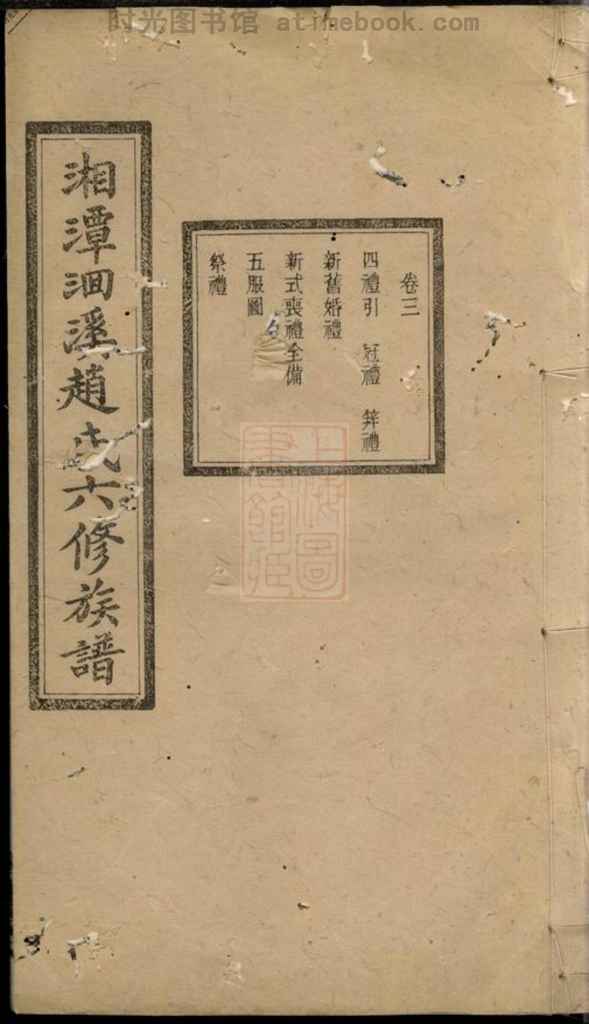 时光图书馆 atimebook.com
湘潭泂溪趙氏六修族譜
卷三
四禮引 冠禮 笄禮
新舊婚禮
新式喪禮全備
五服圖
祭禮
上海圖書館藏